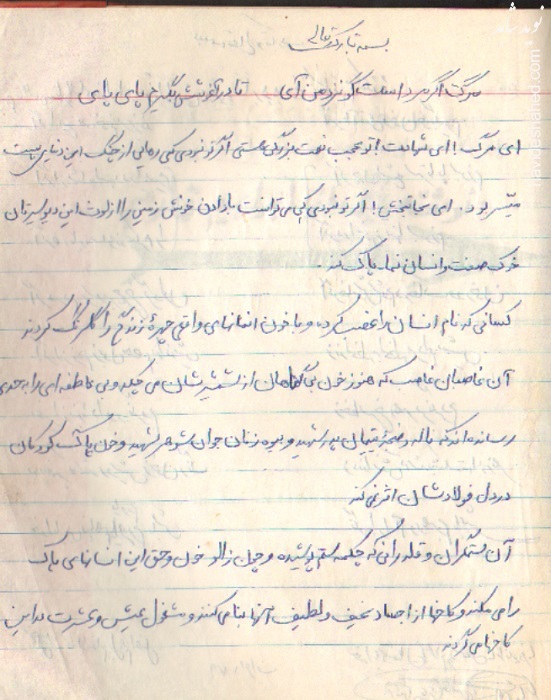 بسمه تبارک و تعالی
مرگ اگر مرد است گو نزد من آی تا در آغوشش بگیرم پای پای
ای مرگ! ای شهادت! تو عجب نعمت بزرگی هستی اگر تو نبودی کی رهایی از چنگ این دنیای پست
میّسر بود. ای نجاتبخش! اگر تو نبودی کی می‌توانست با دادن خونش زمین را از لوث این دیو سیرتان
خوک صفت و انسان نما، پاک کند.
کسانی که نام انسان را غصب کرده و با خون انسانهای واقعی چهرهٔ زندگی را گلرنگ کردند
آن غاصبان غاصب که هنوز خون بی‌گناهان از شمشیرشان می‌چکد و بی عاطفه‌ای را به حدی
رسانده‌اند که ناله و ضجّهٔ یتیمان پدر شهید و بیوه زنان جوان شوهر شهید و خون پاک کودکان
در دل فولادشان اثر نمی‌کند
آن ستمگران و قلدرانی که چکمه ستم پوشیده و چون زالو خون و حق این انسانهای پاک
را می‌مکند و کاخها از اجساد نحیف و لطیف آنها بنا می‌کنند و مشغول عیش و عشرت در این
کاخها می‌گردند
نوید شاهد
navideshahed.com